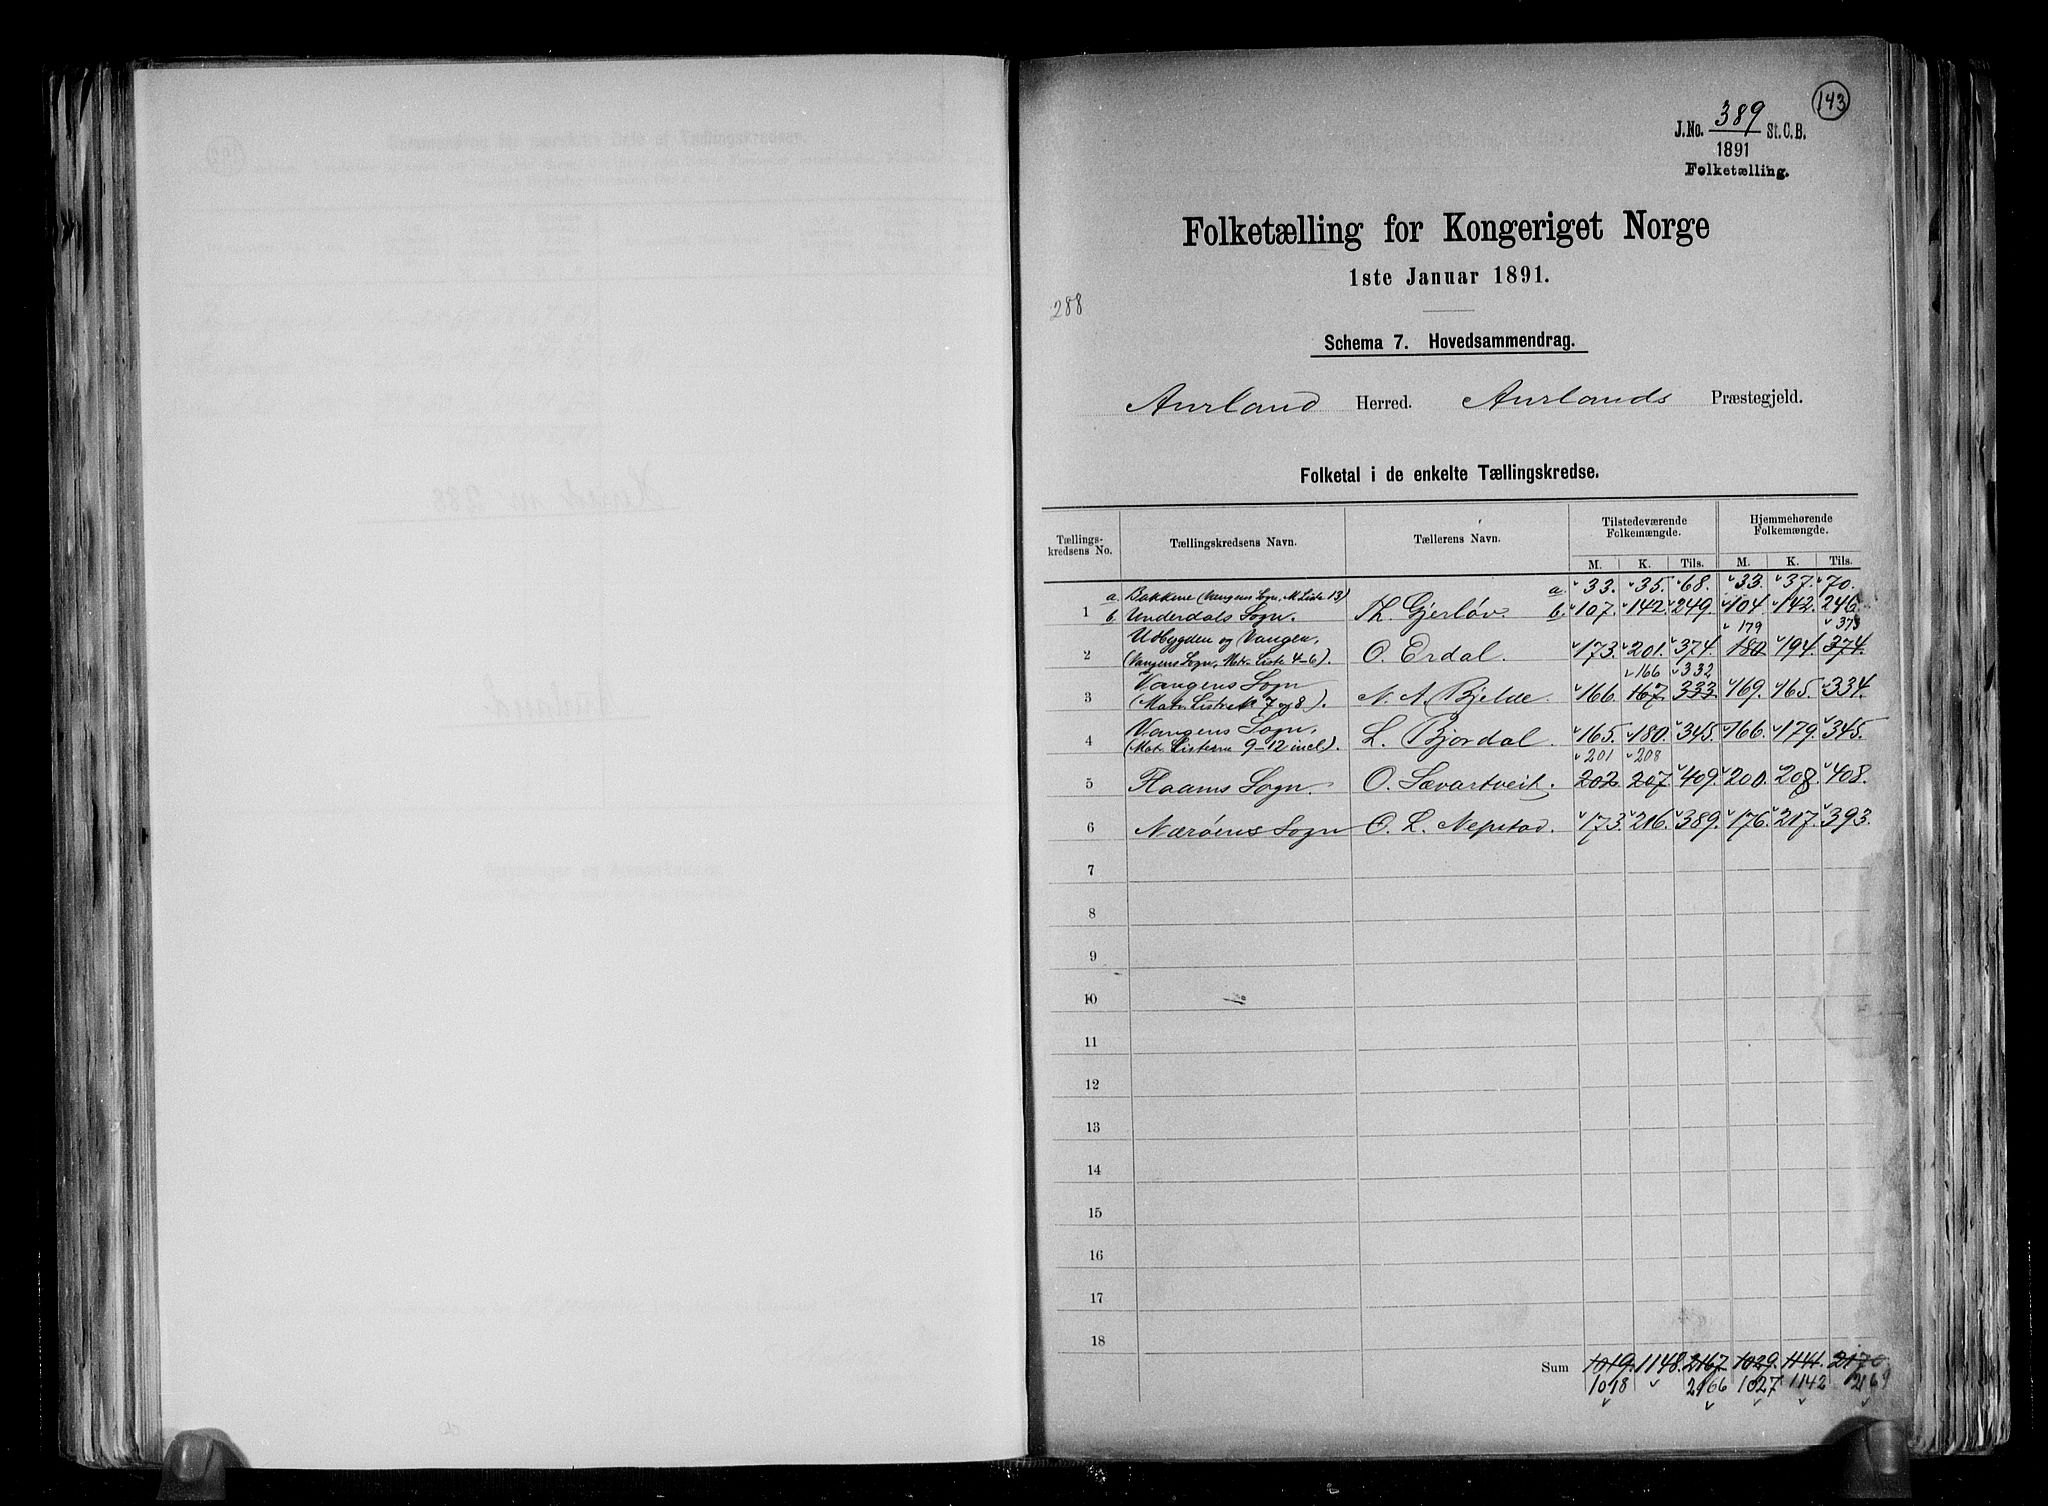 143
J.No. 389 St. C. B.
1891
Folketælling.
Folketælling for Kongeriget Norge
1ste Januar 1891.
288
Schema 7. Hovedsammendrag.
Aurland Herred. Aurlands Præstegjeld.
Folketal i de enkelte Tællingskredse.
Tællings-kredsens No. Tællingskredsens Navn. Tællerens Navn. Tilstedeværende Folkemængde. Hjemmehørende Folkemængde.
M. K. Tils. M. K. Tils.
a Bakkene (Vangens Sogn, M. Liste 13) a. 33. 35. 68. 33. 37. 70.
1 b. Underdals Sogn. Th. Gjerløv. b. 107. 142. 249. 104. 142. 246.
Udbygden og Vangen, 179 373
2 (Vangens Sogn, Matr. Liste 4-6). O. Erdal. 173. 201. 374. 180 194. 374.
Vangens Sogn 166 332
3 (Matr. Listrek 7 og 8). N. A. Bjelde. 166 167 333 169. 165. 334.
Vangens Sogn,
4 (Mat. Listerne 9-12 incl). L. Bjørdal. 165. 180. 345. 166. 179. 345.
201 208
5 Flaams Sogn. O. Sævartveit. 202 207. 409. 200. 208. 408.
6 Nærøens Sogn O. L. Nepstad. 173. 216. 389. 176. 217. 393.
7
8
9
10
11
12
13
14
15
16
17
18
Sum 1019. 1148. 2167 1029. 1144. 2170
1018 2166 1027 1142 2169